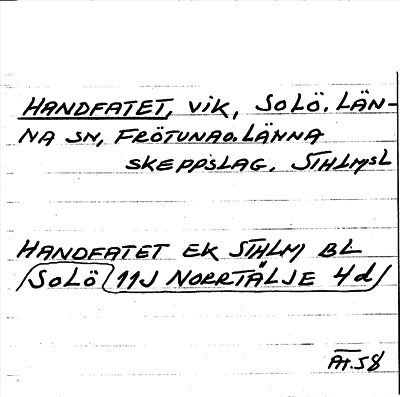 HANDFATET, vik, Solö. LÄN-
NA SN, FRÖTUNA o. LÄNNA
SKEPPSLAG. STHLMSL
HANDFATET EK STHLM BL
SOLÖ 11J NORRTÄLJE 4d
ÅT.58